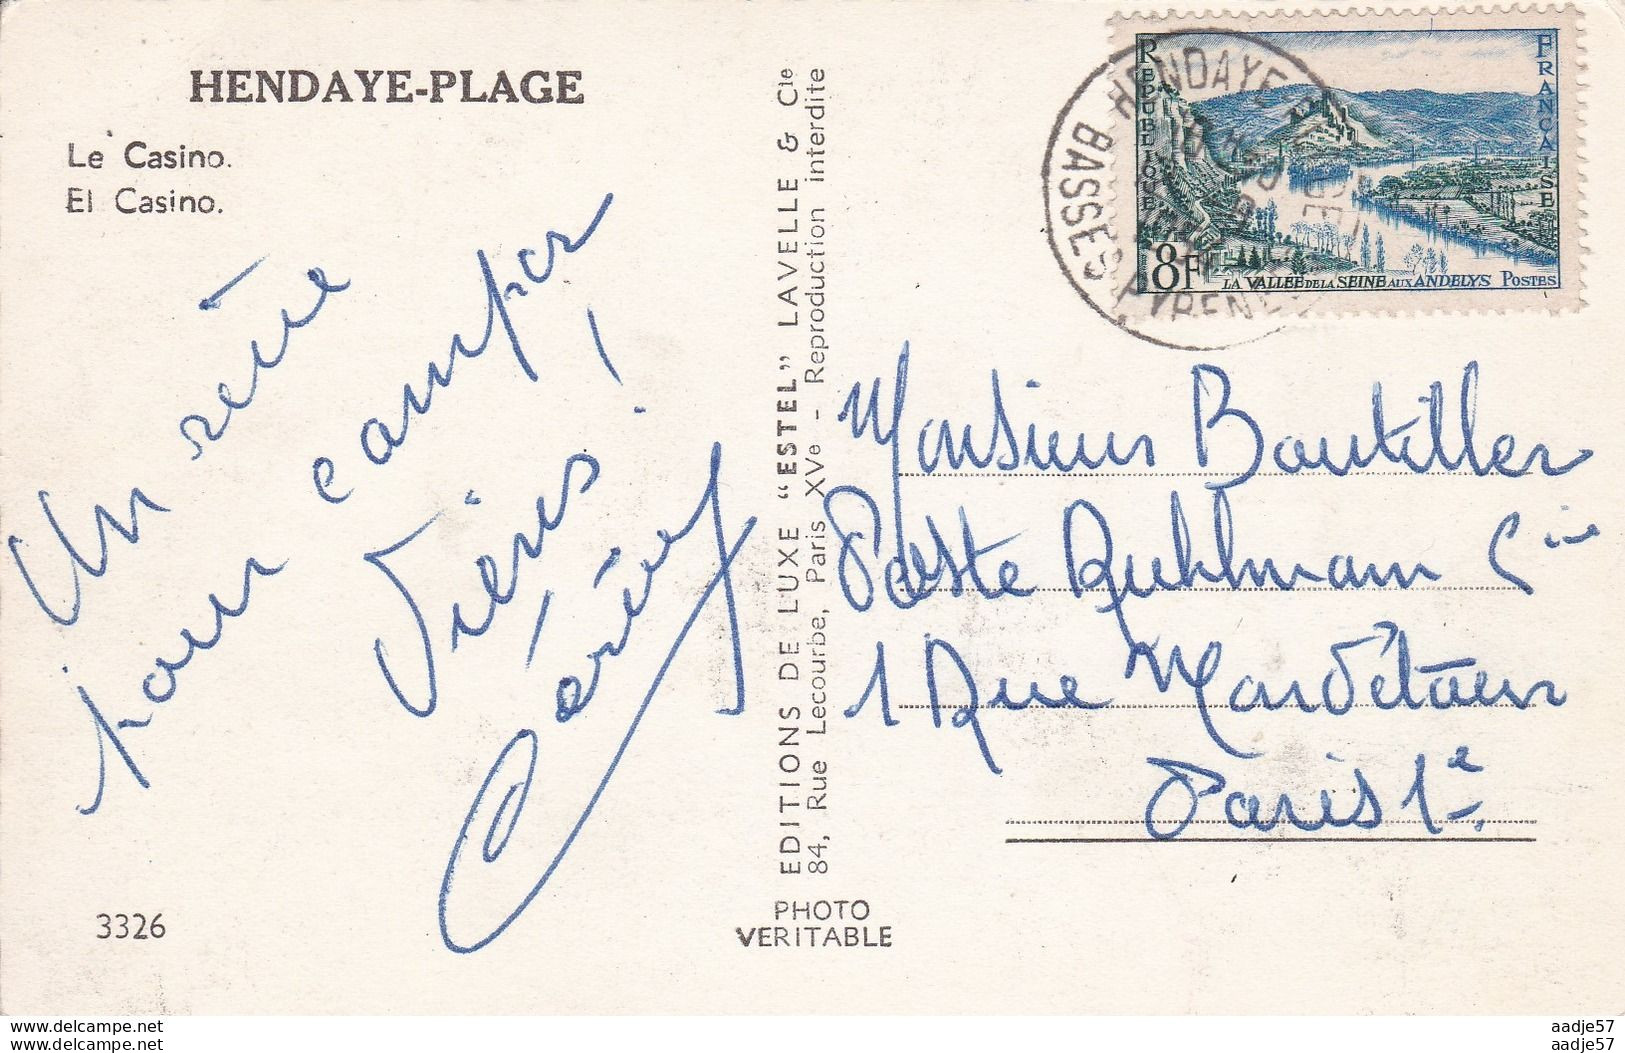 HENDAYE-PLAGE
Le Casino.
El Casino.
Un rêve
pour camper
!
3326
EDITIONS DE LUXE "ESTEL" LAVELLE & Cie
84, Rue Lecourbe, Paris XVe - Reproduction interdite
PHOTO
VERITABLE
REPUBLIQUE FRANCAISE
8F
LA VALLEE DE LA SEINE AUX ANDELYS POSTES
HENDAYE PLAGE
BASSES PYRENEES
Monsieur Boutiller
Poste Ruhlmann
1 Rue
Paris 1e
www.delcampe.net
www.delcampe.net
aadje57
aadje57